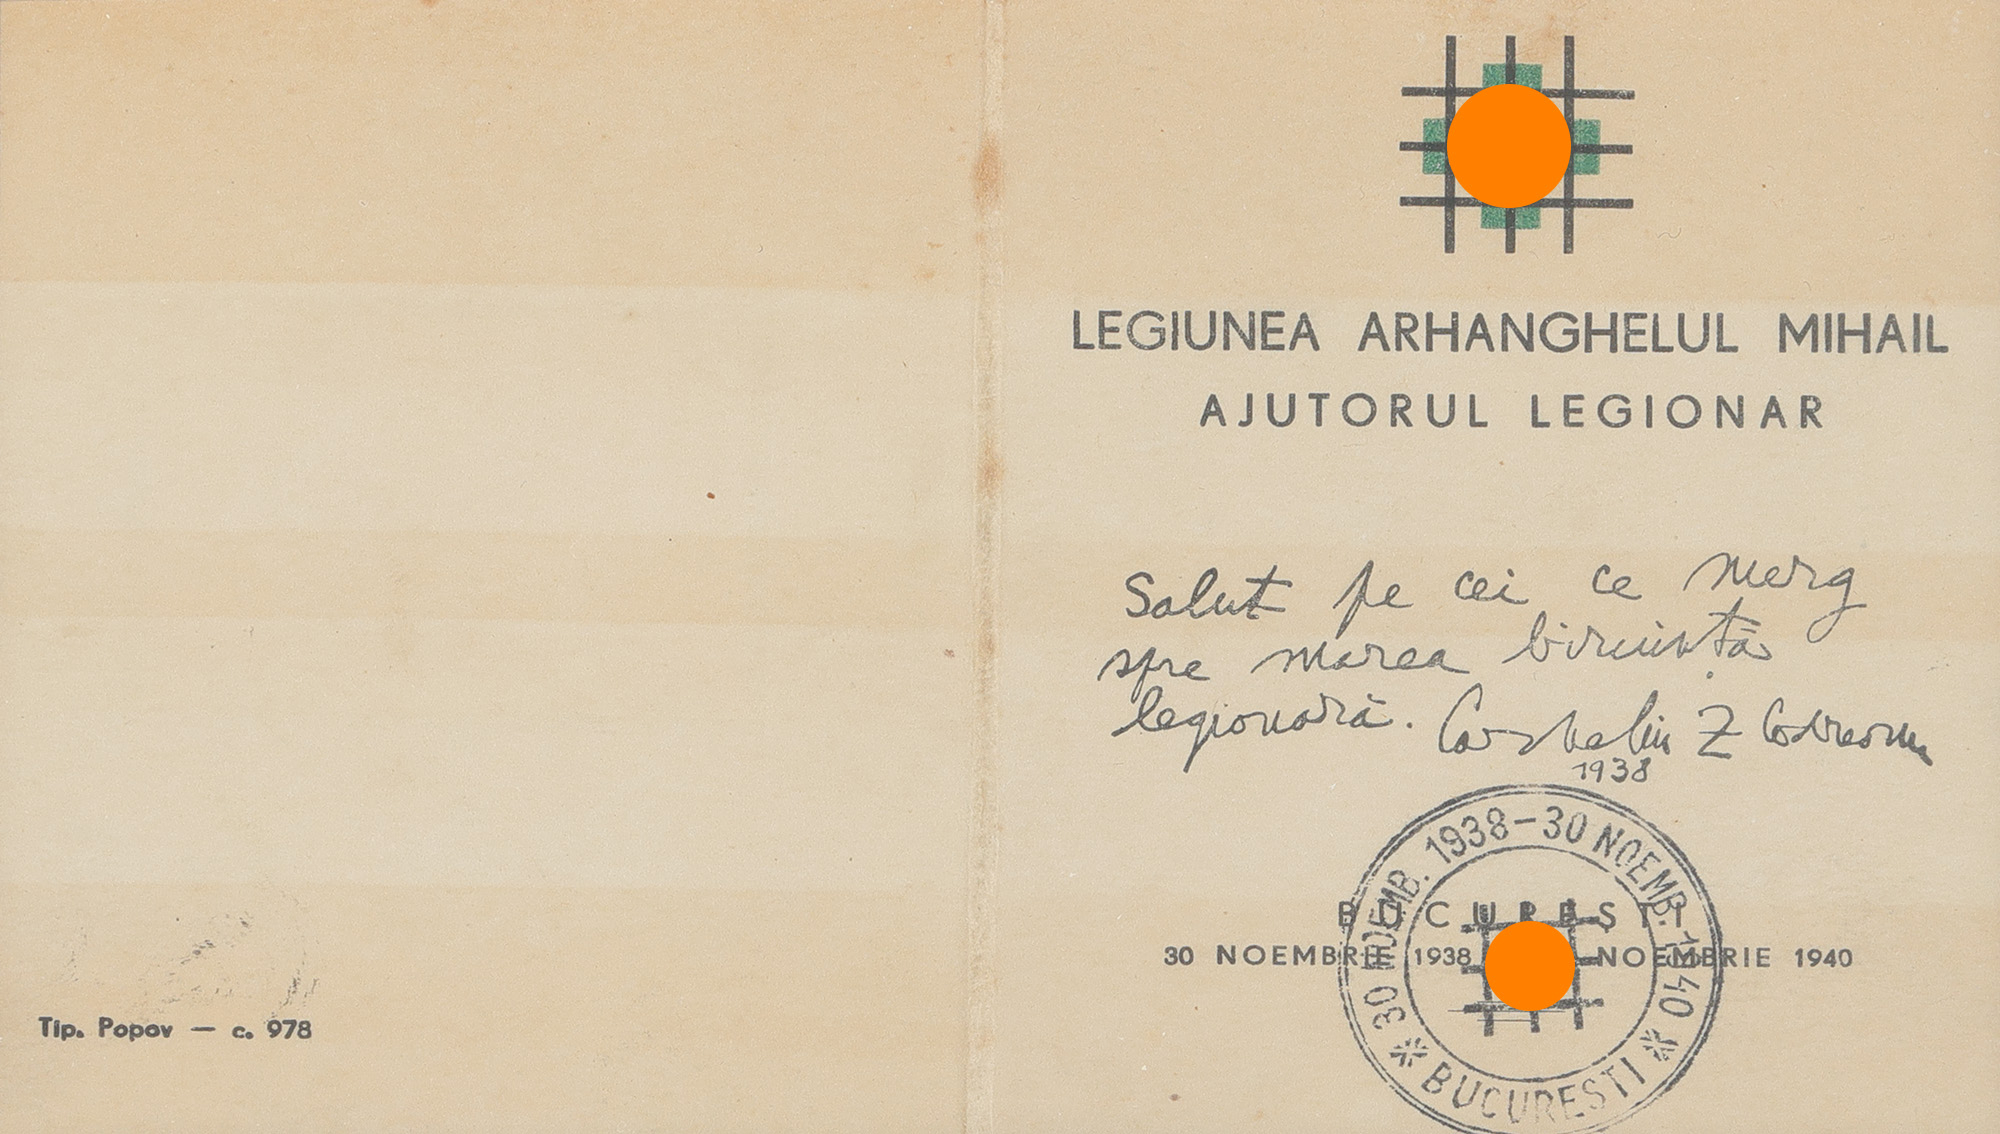 LEGIUNEA ARHANGHELUL MIHAIL
AJUTORUL LEGIONAR
Salut pe cei ce merg
spre marea biruință
legionară. Corneliu Z Codreanu
1938
BUCUREȘTI
30 NOEMBRIE 1938 NOEMBRIE 1940
30 NOEMB. 1938-30 NOEMB. 1940
* BUCUREȘTI *
Tip. Popov — c. 978